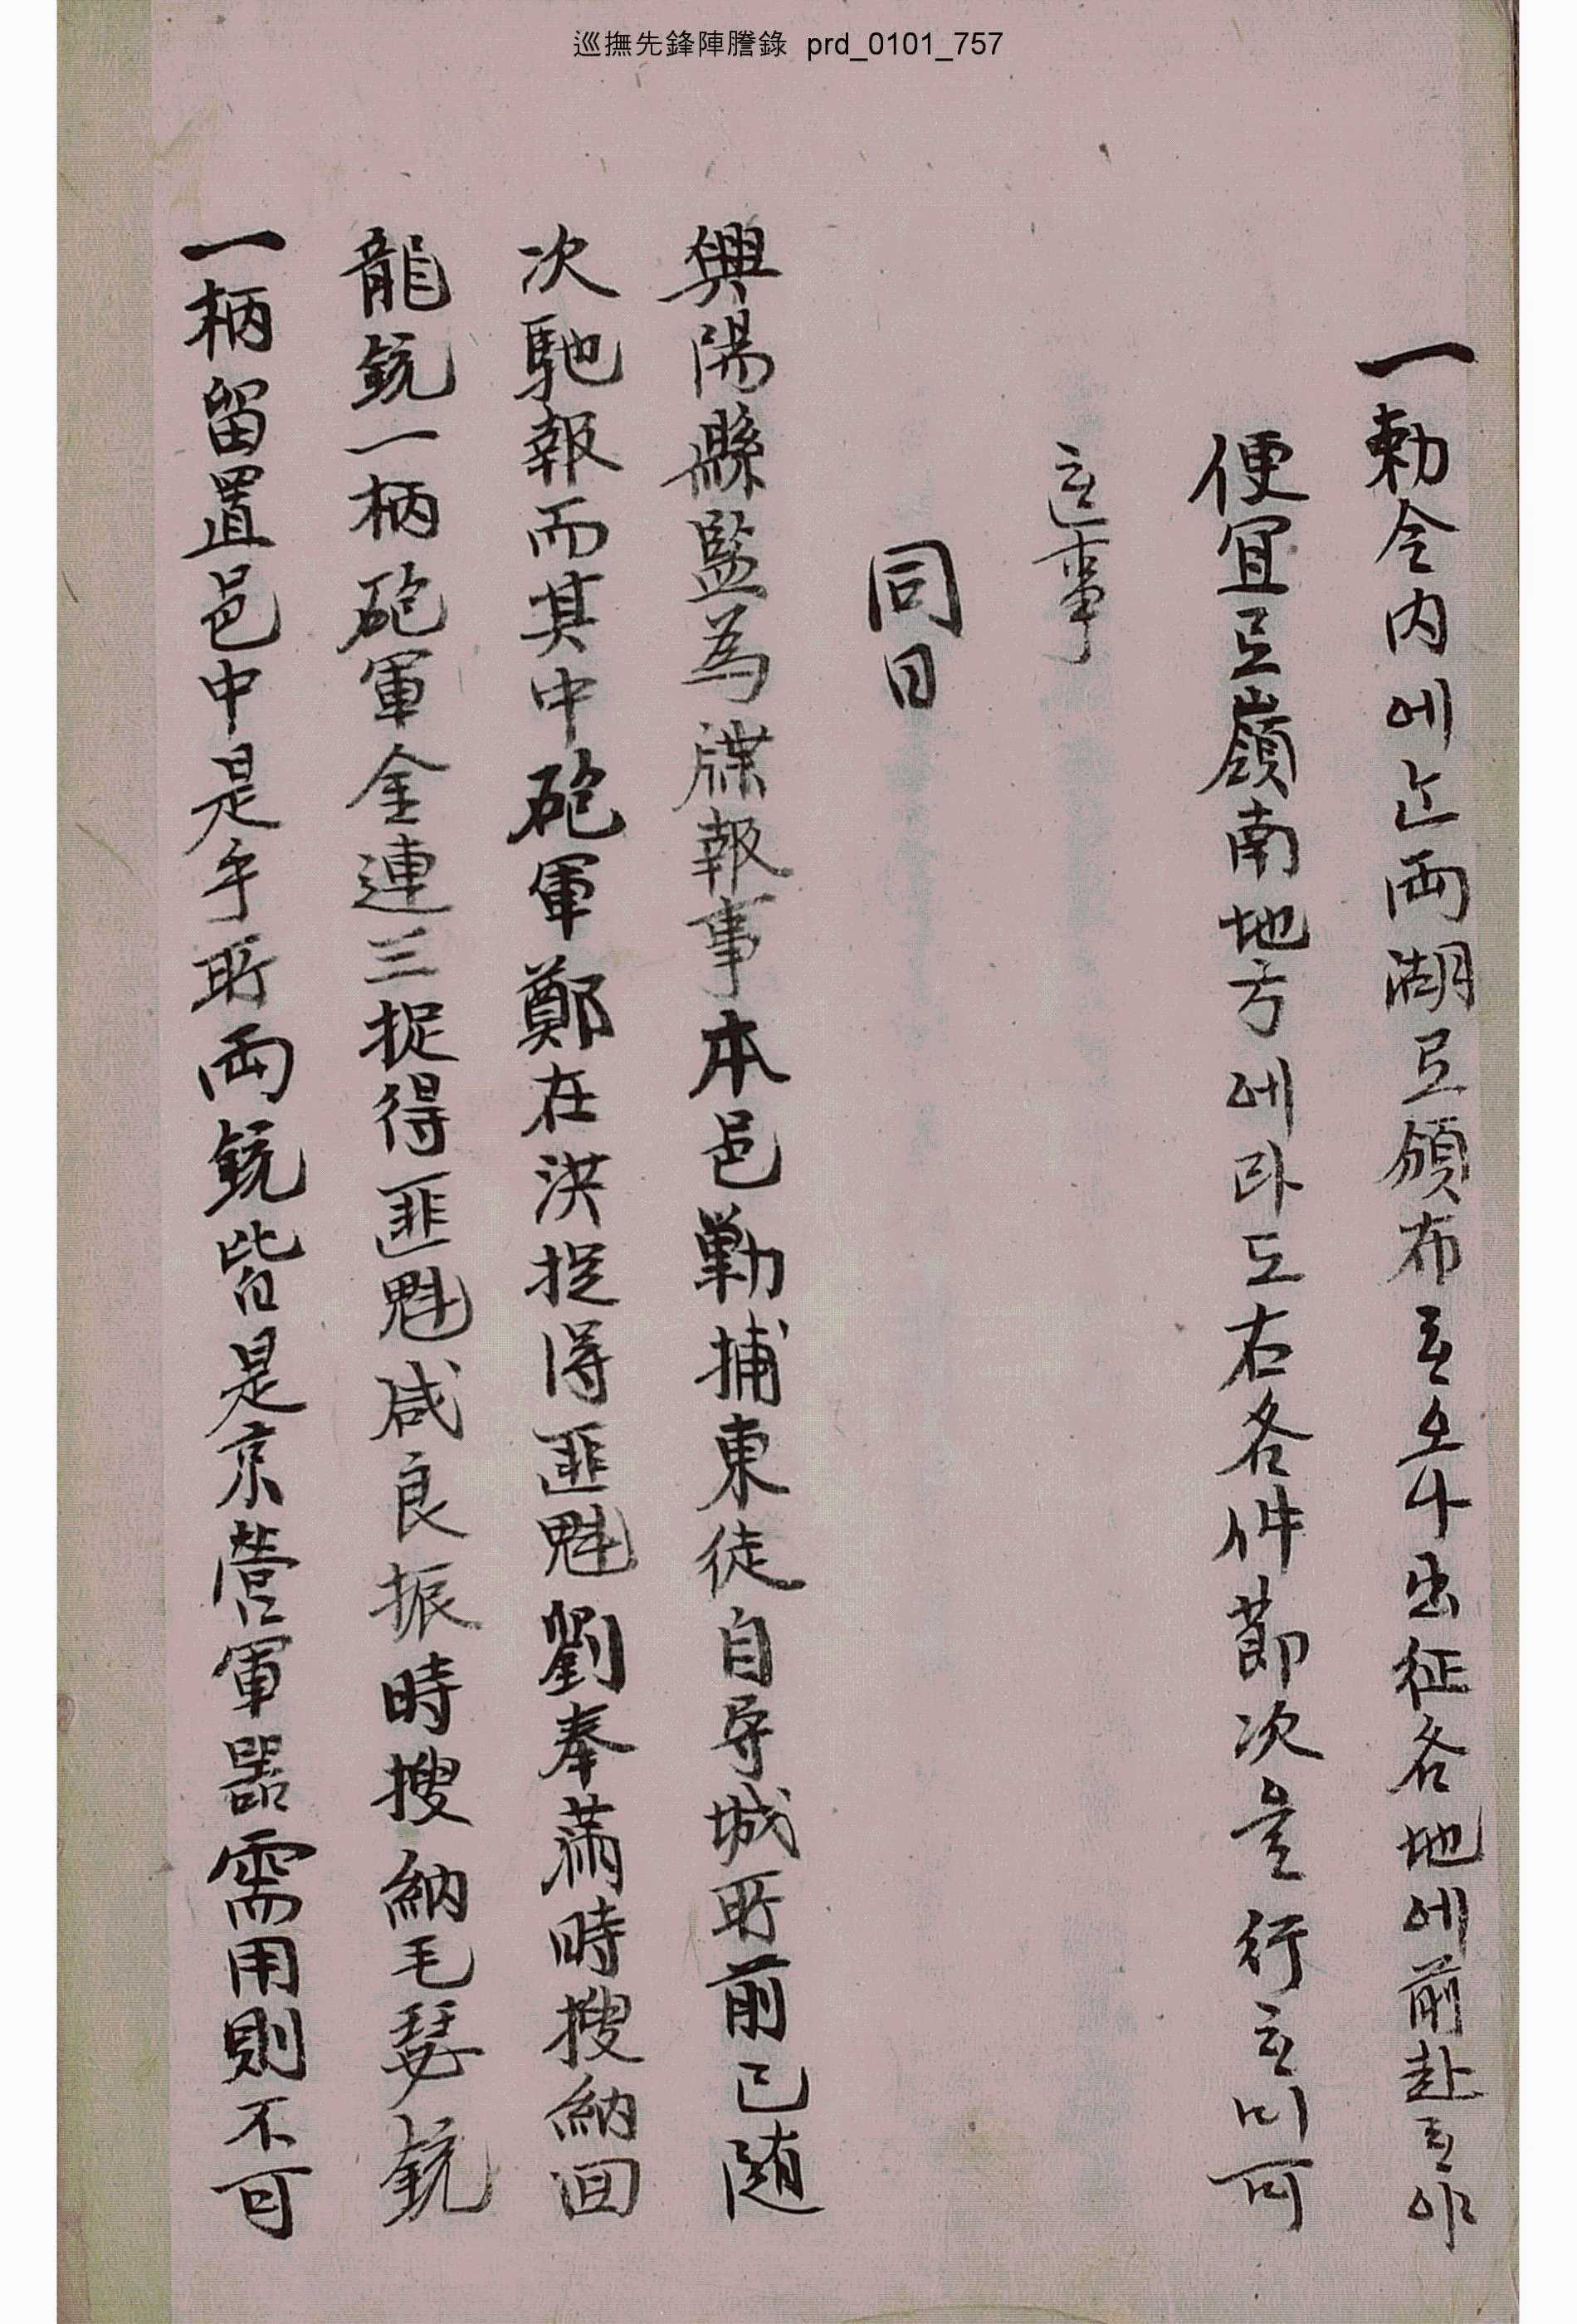 巡撫先鋒陣謄錄 prd_0101_757
一勅令内에ᄂᆞᆫ両湖로頒布ᄒᆞ오나出征各地에前赴ᄒᆞ야
便宜로嶺南地方에라도右各件節次을行ᄒᆞ미可
ᄒᆞᆫ事
同日
興陽縣監為牒報事本邑勦捕東徒自守城所前已随
次馳報而其中砲軍鄭在洪捉得匪魁劉奉満時搜納回
龍銃一柄砲軍金連三捉得匪魁咸良振時搜納毛瑟銃
一柄留置邑中是乎所両銃皆是京營軍器需用則不可